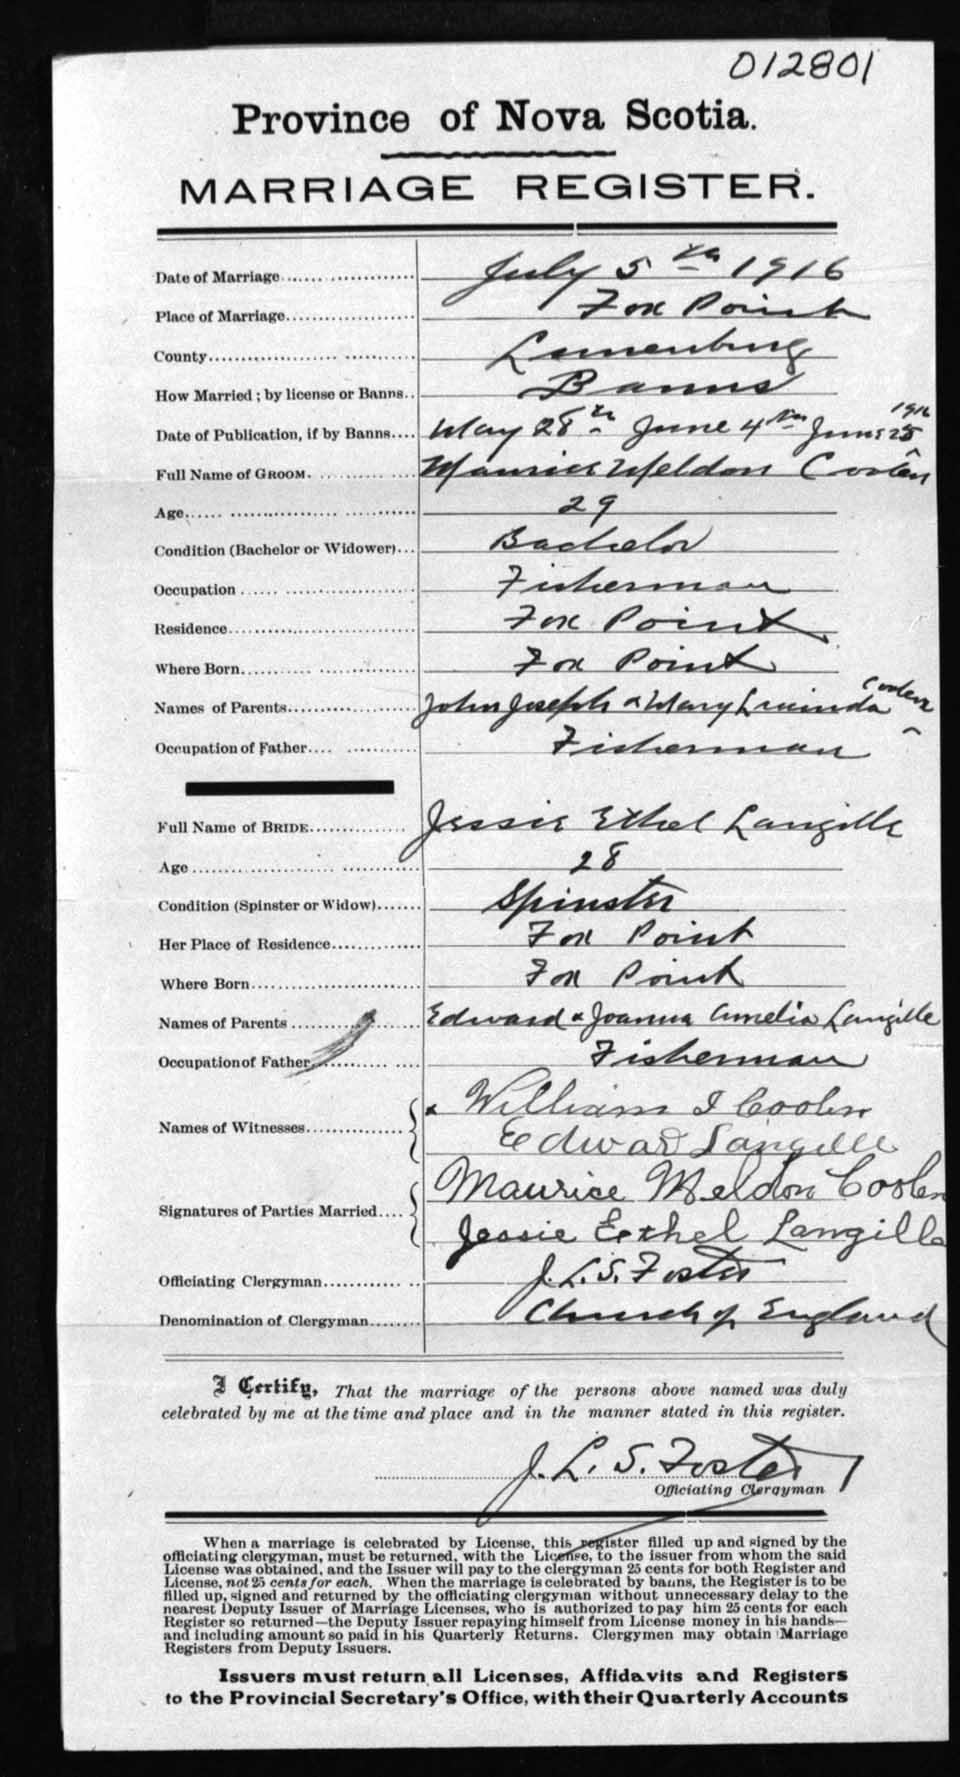 012801
Province of Nova Scotia.
MARRIAGE REGISTER.
Date of Marriage July 5th 1916
Place of Marriage Fox Point
County Lunenburg
How Married; by license or Banns Banns
Date of Publication, if by Banns May 28th June 4th June 25 1916
Full Name of GROOM Maurice Meldon Coolen
Age 29
Condition (Bachelor or Widower) Bachelor
Occupation Fisherman
Residence Fox Point
Where Born Fox Point
Names of Parents John Joseph & Mary Lucinda Coolen
Occupation of Father Fisherman
Full Name of BRIDE Jessie Ethel Langille
Age 28
Condition (Spinster or Widow) Spinster
Her Place of Residence Fox Point
Where Born Fox Point
Names of Parents Edward & Joanna Amelia Langille
Occupation of Father Fisherman
Names of Witnesses William I Coolen
Edward Langille
Signatures of Parties Married Maurice Meldon Coolen
Jessie Ethel Langille
Officiating Clergyman J. L. S. Foster
Denomination of Clergyman Church of England
I Certify, That the marriage of the persons above named was duly
celebrated by me at the time and place and in the manner stated in this register.
J. L. S. Foster
Officiating Clergyman
When a marriage is celebrated by License, this register filled up and signed by the
officiating clergyman, must be returned, with the License, to the issuer from whom the said
License was obtained, and the Issuer will pay to the clergyman 25 cents for both Register and
License, not 25 cents for each. When the marriage is celebrated by banns, the Register is to be
filled up, signed and returned by the officiating clergyman without unnecessary delay to the
nearest Deputy Issuer of Marriage Licenses, who is authorized to pay him 25 cents for each
Register so returned—the Deputy Issuer repaying himself from License money in his hands—
and including amount so paid in his Quarterly Returns. Clergymen may obtain Marriage
Registers from Deputy Issuers.
Issuers must return all Licenses, Affidavits and Registers
to the Provincial Secretary's Office, with their Quarterly Accounts